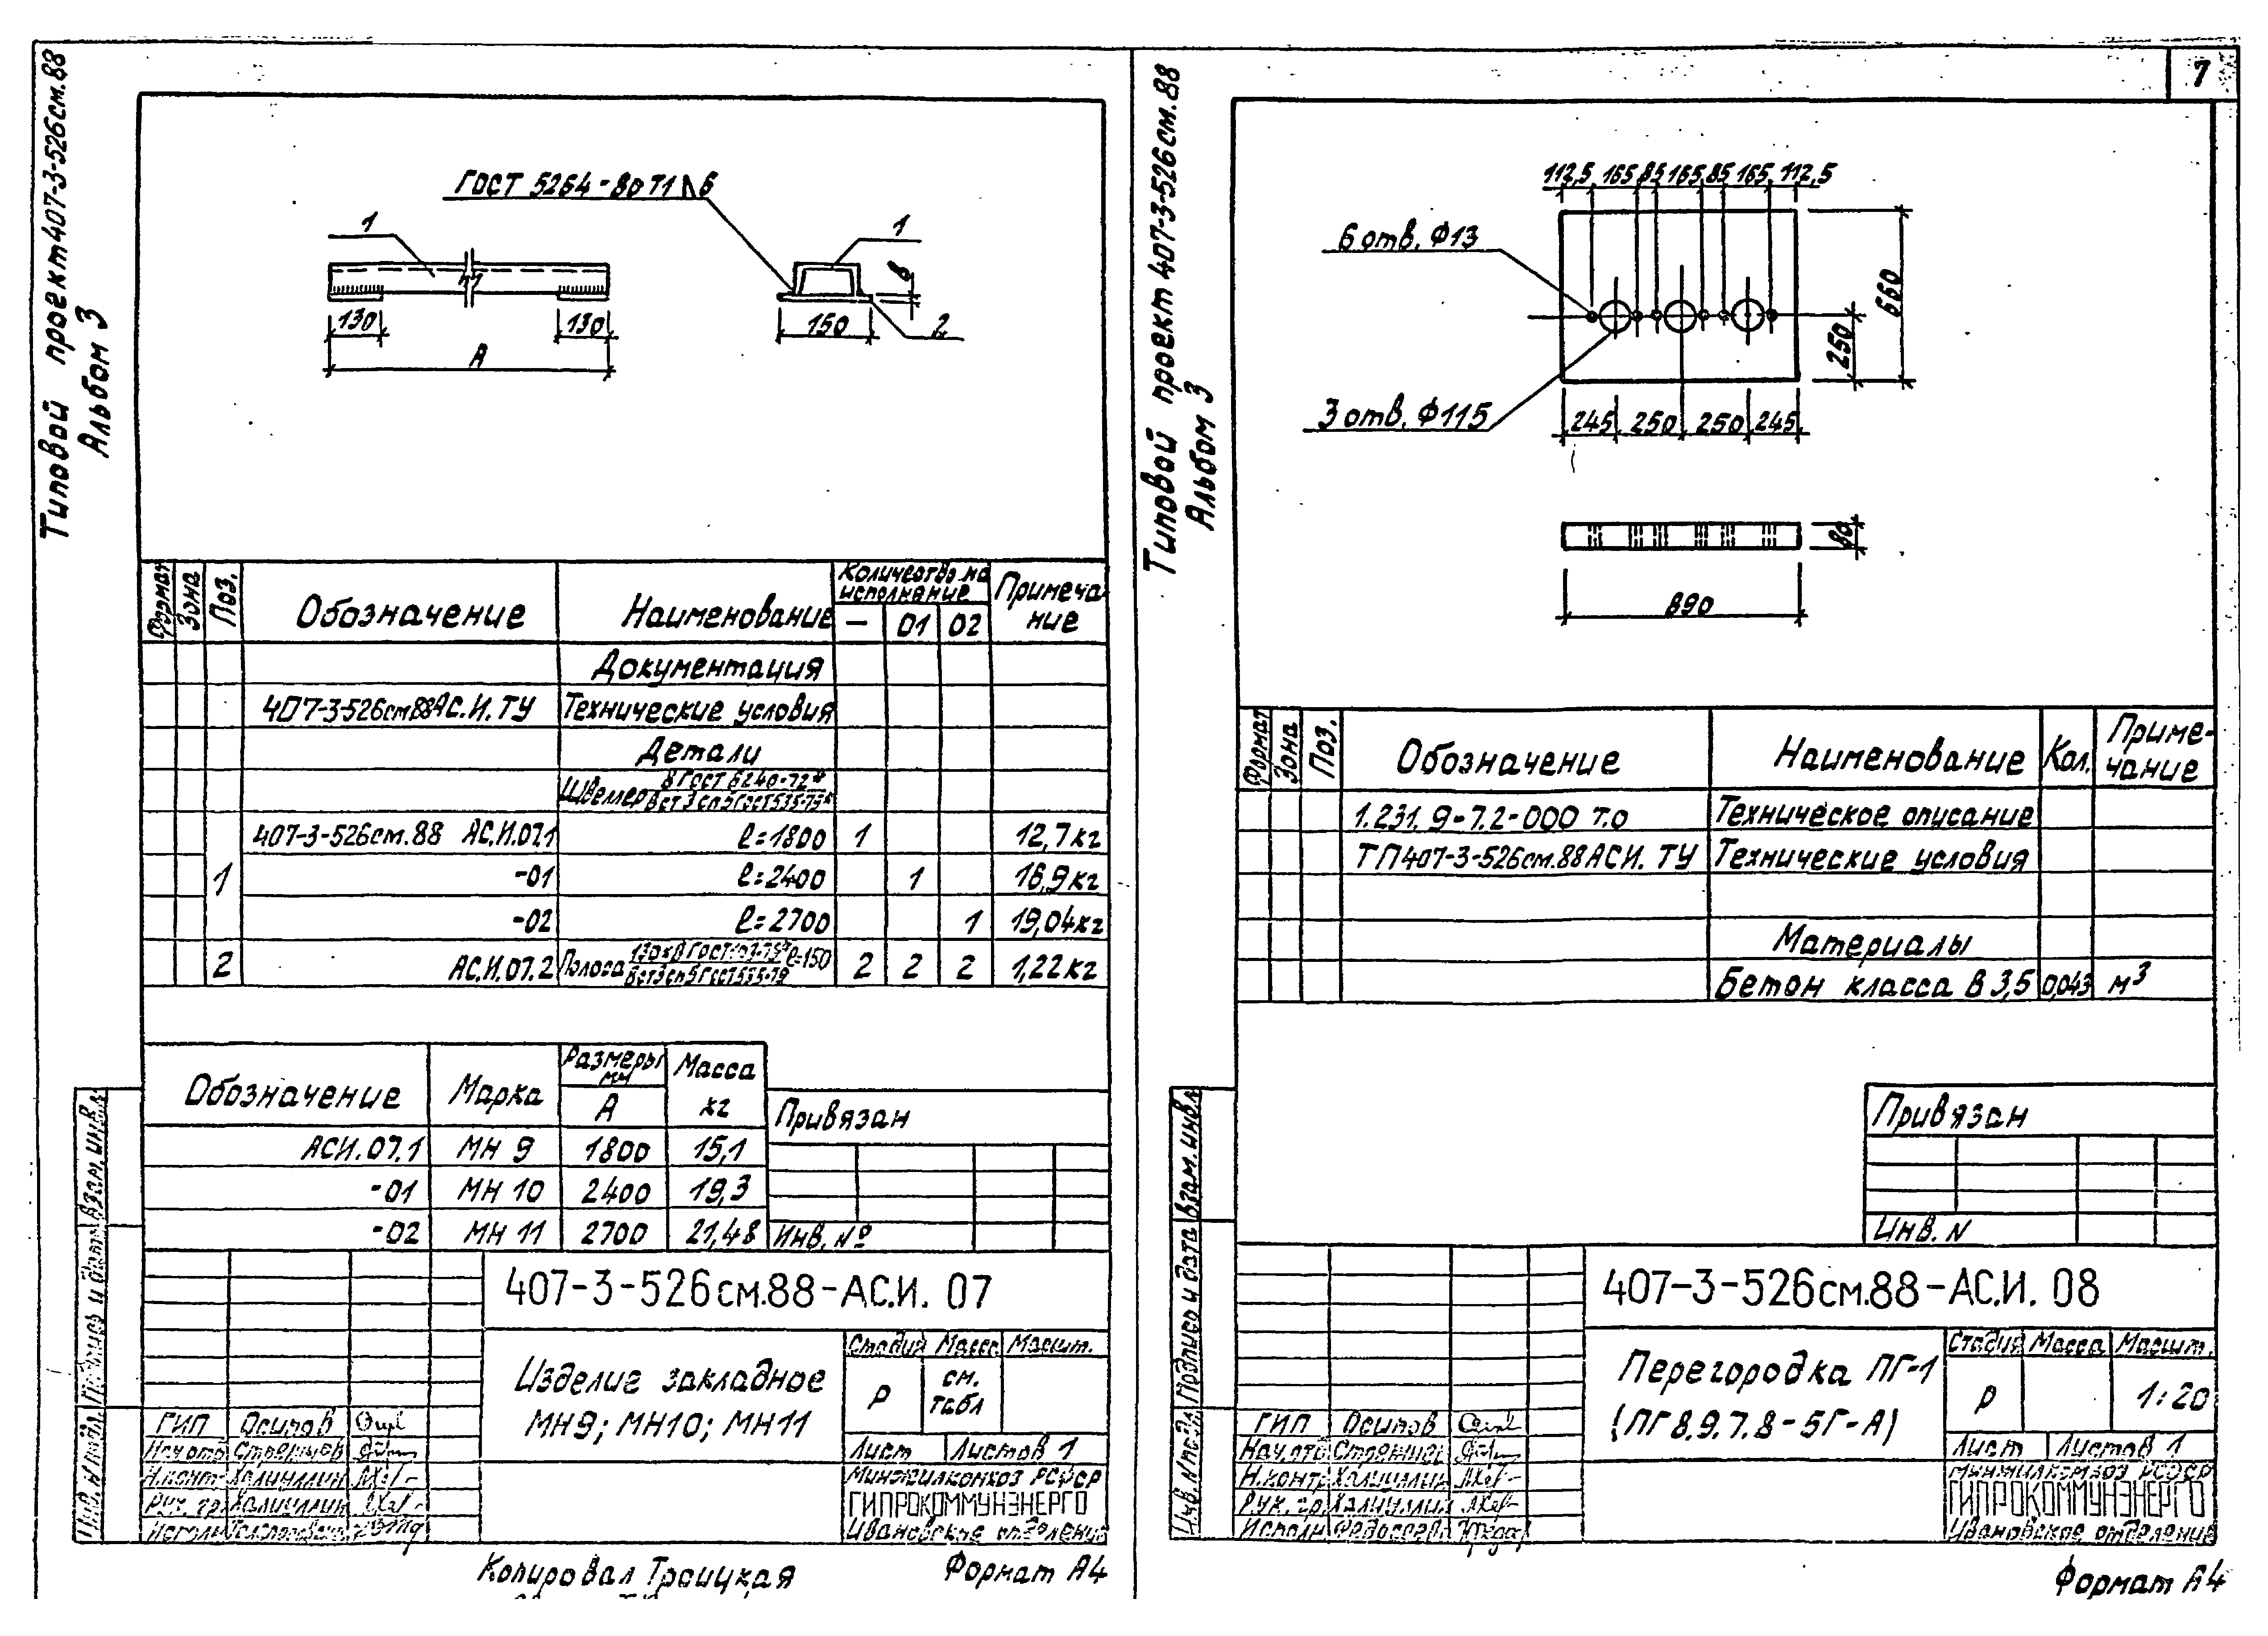 Типовой проект 407-3-526см.88
Альбом 3
ГОСТ 5264-80 Т1 6
1
1
2
8
130
130
А
150
Формат
Зона
Поз.
Обозначение
Наименование
Количество на исполнение
Примечание
— 01 02
Документация
407-3-526см.88АС.И.ТУ Технические условия
Детали
Швеллер 8 ГОСТ 8240-72*
ВСт3сп5 ГОСТ 535-79*
407-3-526см.88 АС.И.07.1 ℓ=1800 1 12,7кг
1 -01 ℓ=2400 1 16,9кг
-02 ℓ=2700 1 19,04кг
2 АС.И.07.2 Полоса 130х8 ГОСТ 103-76* ℓ=150 2 2 2 1,22кг
ВСт3сп5 ГОСТ 535-79
Обозначение Марка Размеры мм Масса кг
А
АСИ.07.1 МН 9 1800 15,1
-01 МН 10 2400 19,3
-02 МН 11 2700 21,48
Привязан
Инв. №
Взам. инв.
407-3-526см.88-АС.И. 07
Изделие закладное
МН9; МН10; МН11
Стадия Масса Масшт.
Р см. табл
Лист Листов 1
ГИП Осипов
Нач.отд
Н.конт. Халиуллин
Рук. гр. Халиуллин
Минжилкомхоз РСФСР
ГИПРОКОММУНЭНЕРГО
Ивановское отделение
Копировал Троицкая
Формат А4
7
Типовой проект 407-3-526см.88
Альбом 3
112,5 165 85 165 85 165 112,5
6 отв. Ф13
3 отв. Ф115
660
250
245 250 250 245
80
890
Формат
Зона
Поз.
Обозначение
Наименование
Кол.
Примечание
1.231.9-7.2-000 т.о Техническое описание
ТП407-3-526см.88АСИ. ТУ Технические условия
Материалы
Бетон класса В 3,5 0,043 м3
Привязан
Инв. N
Взам. инв.
Подпись и дата
Инв. N подл.
407-3-526см.88-АС.И. 08
Перегородка ПГ-1
(ПГ8.9.7.8-5Г-А)
Стадия Масса Масшт.
Р 1:20
Лист Листов 1
ГИП Осипов
Нач.отд
Н.контр. Халиуллин
Рук. гр. Халиуллин
Исполн.
Минжилкомхоз РСФСР
ГИПРОКОММУНЭНЕРГО
Ивановское отделение
Формат А4